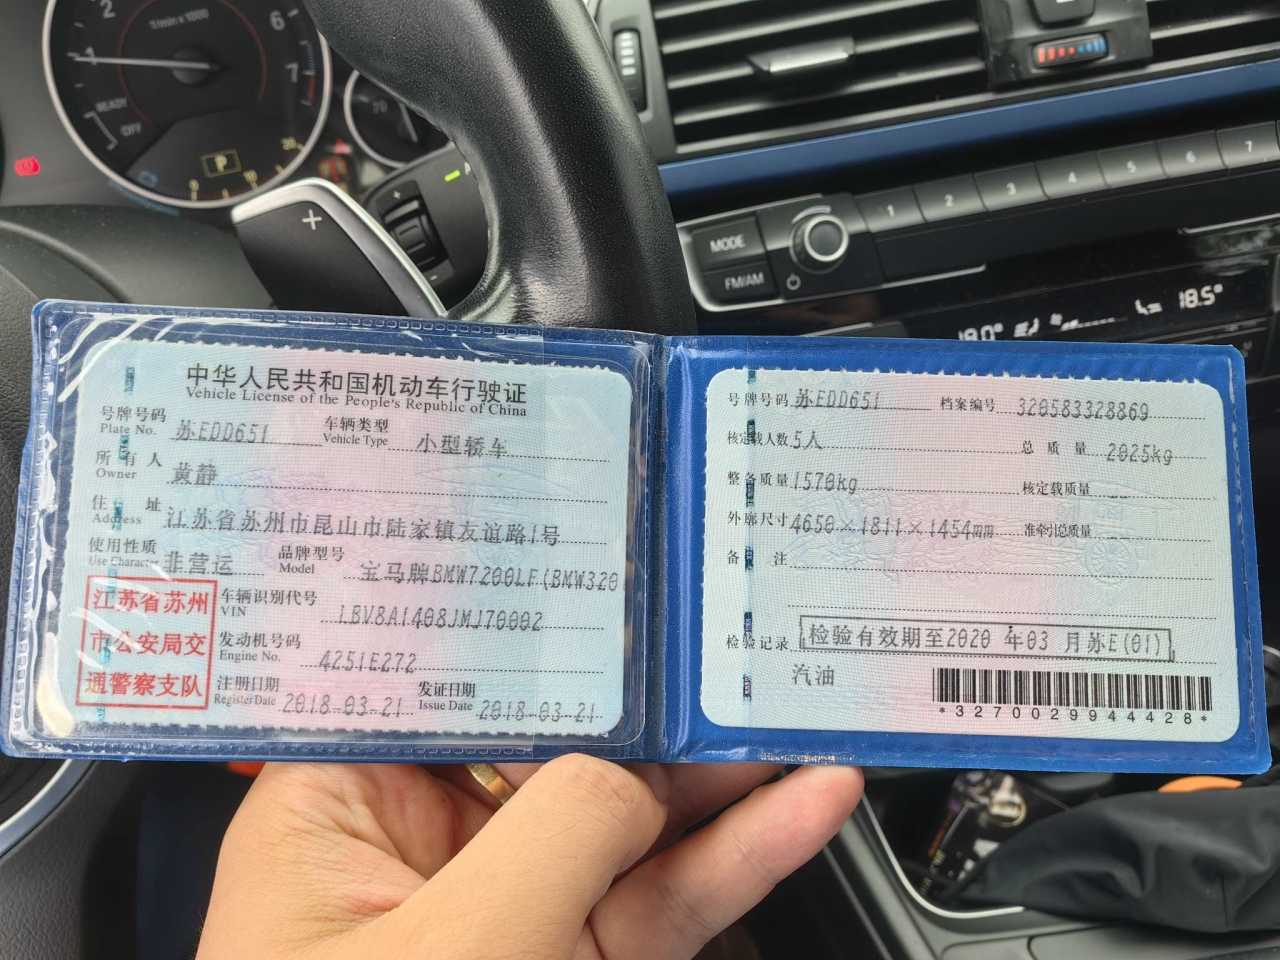 2
6
1
7
1/min x 1000
READY
OFF
P
20
+
+
-
MODE
FM/AM
1
2
3
4
5
6
7
18.5°
中华人民共和国机动车行驶证
Vehicle License of the People's Republic of China
号牌号码 苏EDD651 车辆类型 小型轿车
Plate No. Vehicle Type
所有人 黄静
Owner
住址 江苏省苏州市昆山市陆家镇友谊路1号
Address
使用性质 非营运 品牌型号 宝马牌BMW7200LF(BMW320
Use Character Model
江苏省苏州
市公安局交
通警察支队
车辆识别代号 LBV8A1408JMJ70002
VIN
发动机号码 4251E272
Engine No.
注册日期 2018-03-21 发证日期 2018-03-21
Register Date Issue Date
号牌号码 苏EDD651 档案编号 320583328869
核定载人数 5人 总质量 2025kg
整备质量 1570kg 核定载质量 --
外廓尺寸 4650×1811×1454mm 准牵引总质量 --
备注
检验记录 检验有效期至2020年03月苏E(01)
汽油
*3270029944428*